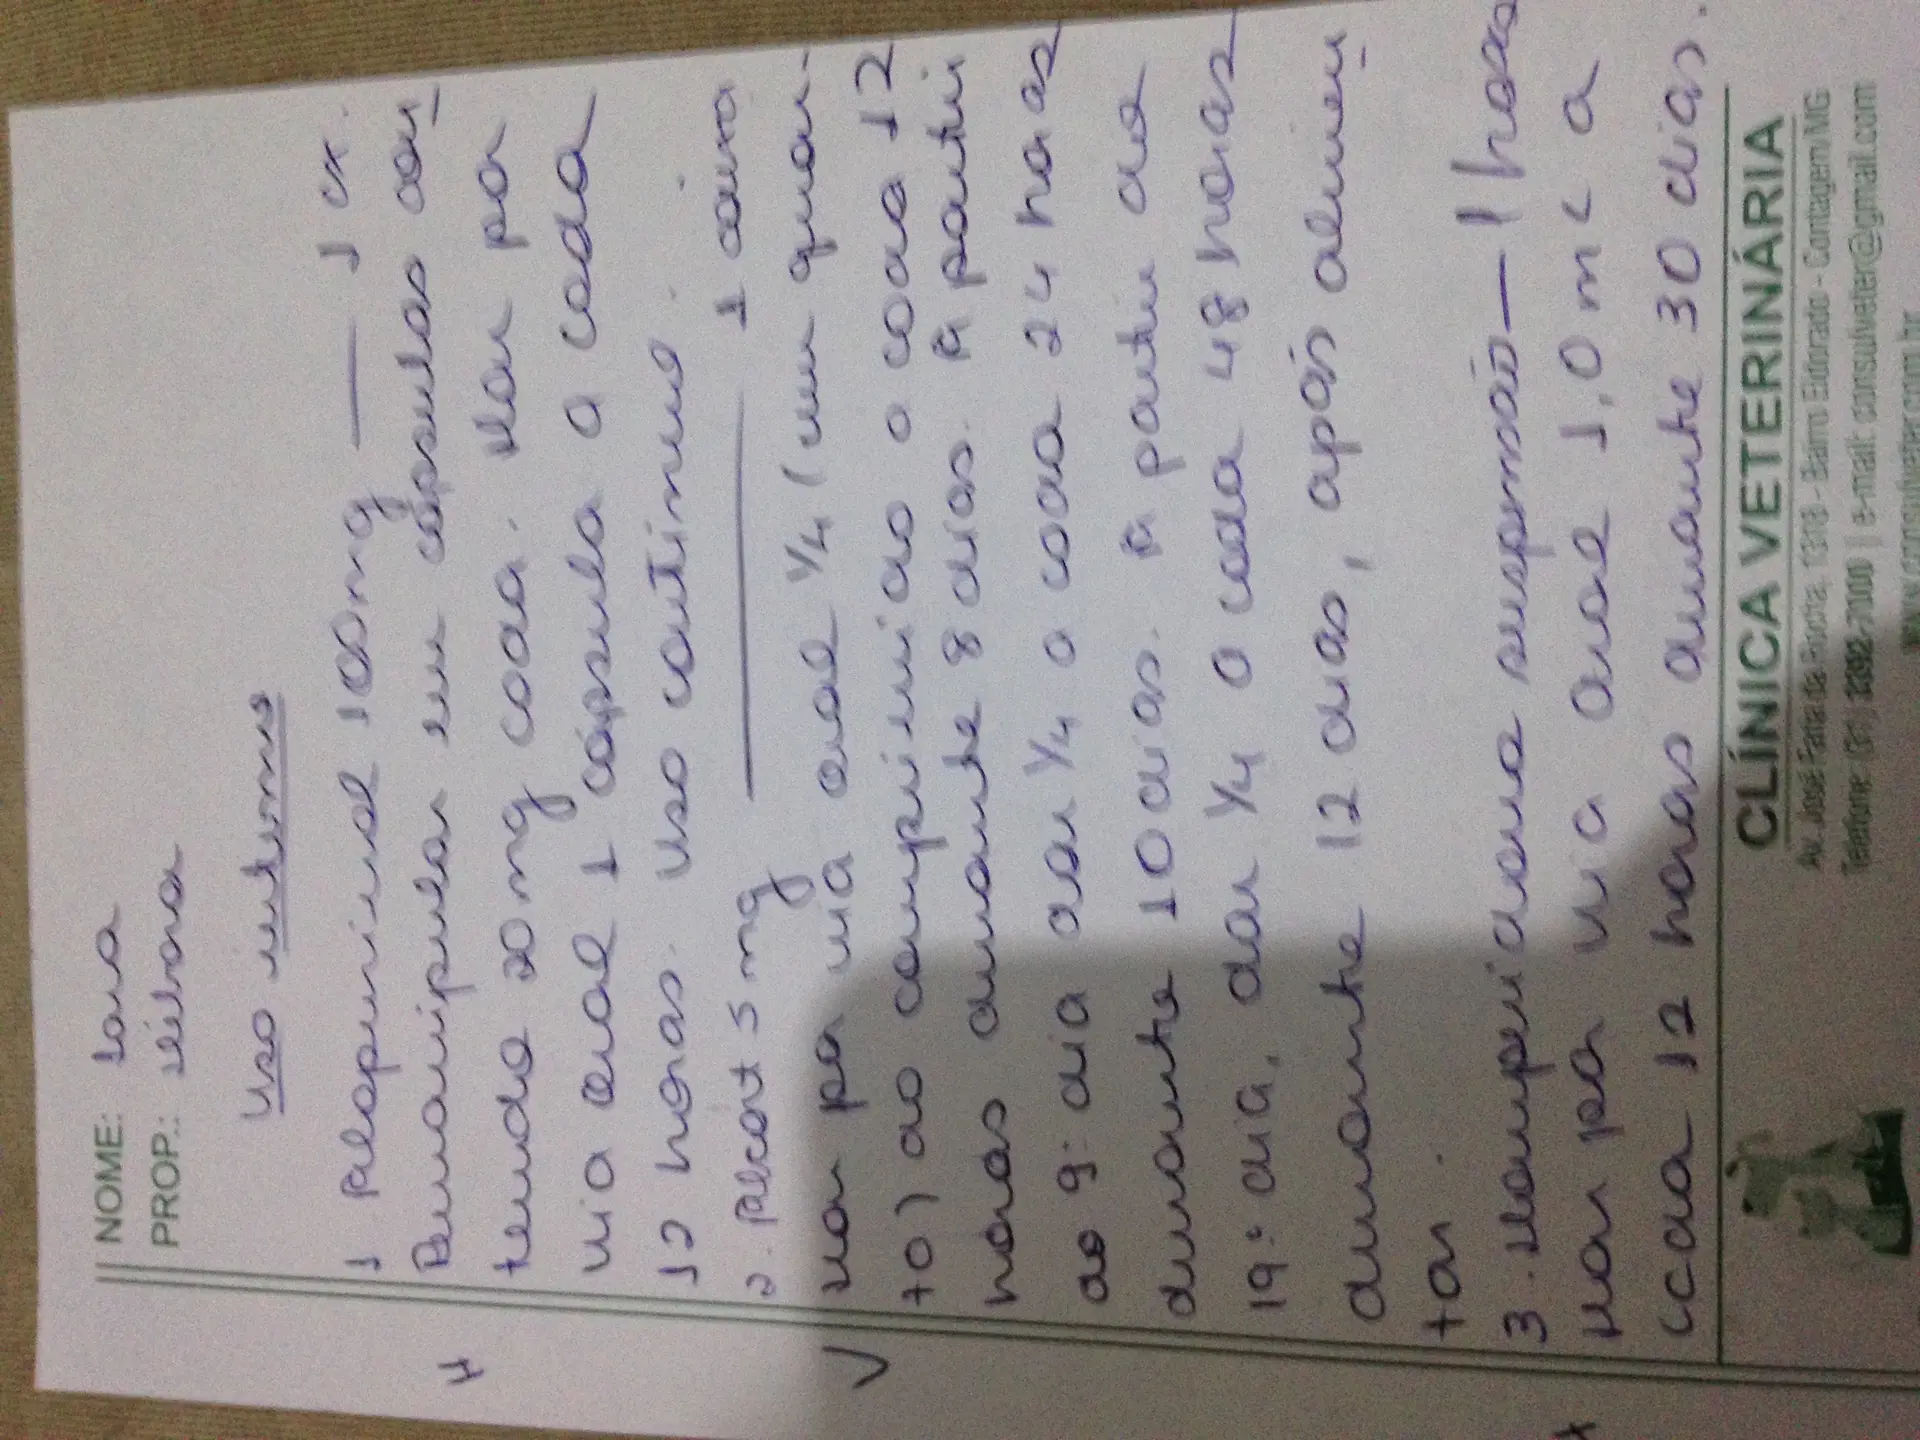 NOME: Lara
PROP.: Silvana
Uso interno
1 Alopurinol 100mg — 1 cx.
Remanipular em cápsulas con
tendo 20mg cada. Dar por
via oral 1 cápsula a cada
12 horas. Uso contínuo.
2. Alcort 5mg — 1 caixa
Dar por via oral 1/4 (um quar-
to) do comprimido a cada 12
horas durante 8 dias. A partir
do 9º dia dar 1/4 a cada 24 horas
durante 10 dias. A partir do
19º dia, dar 1/4 a cada 48 horas
durante 12 dias, após alimen
tar.
3. Domperidona suspensão — 1
Dar por via oral 1,0 ml a
cada 12 horas durante 30 dias.
CLÍNICA VETERINÁRIA
Av. José Faria da Rocha, - Bairro Eldorado - Contagem/MG
Telefone: (31) | e-mail: consulveter@gmail.com
www.consulveter.com.br